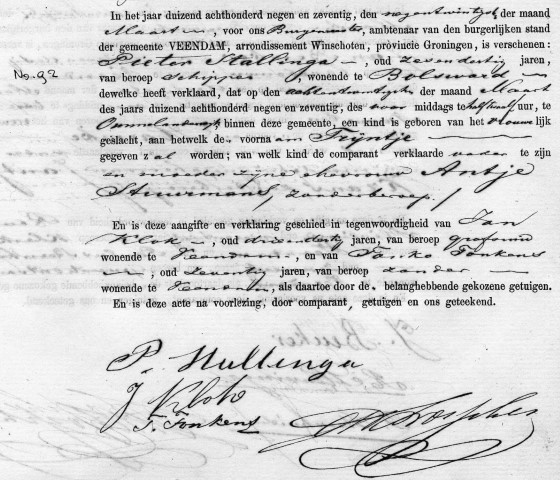 In het jaar duizend achthonderd negen en zeventig, den negentwintigste der maand
Maart, voor ons Burgemeester, ambtenaar van den burgerlijken stand
der gemeente VEENDAM, arrondissement Winschoten, provincie Groningen, is verschenen:
Pieter Stallinga, oud zevendertig jaren,
No. 92
van beroep schipper, wonende te Bolsward
dewelke heeft verklaard, dat op den achtentwintigste der maand Maart
des jaars duizend achthonderd negen en zeventig, des voor middags te half twaalf uur, te
Ommelanderwijk binnen deze gemeente, een kind is geboren van het vrouwelijk
geslacht, aan hetwelk de voornaam Trijntje
gegeven zal worden; van welk kind de comparant verklaarde vader te zijn
en moeder zijne vrouw Antje
Stuurmans, zonder beroep./
En is deze aangifte en verklaring geschied in tegenwoordigheid van Jan
Klok, oud driendertig jaren, van beroep
wonende te Veendam, en van Tonkens
, oud zeventig jaren, van beroep zonder
wonende te Veendam, als daartoe door de belanghebbende gekozene getuigen.
En is deze acte na voorlezing, door comparant, getuigen en ons geteekend.
P. Stallinga
J Klok
T. Tonkens